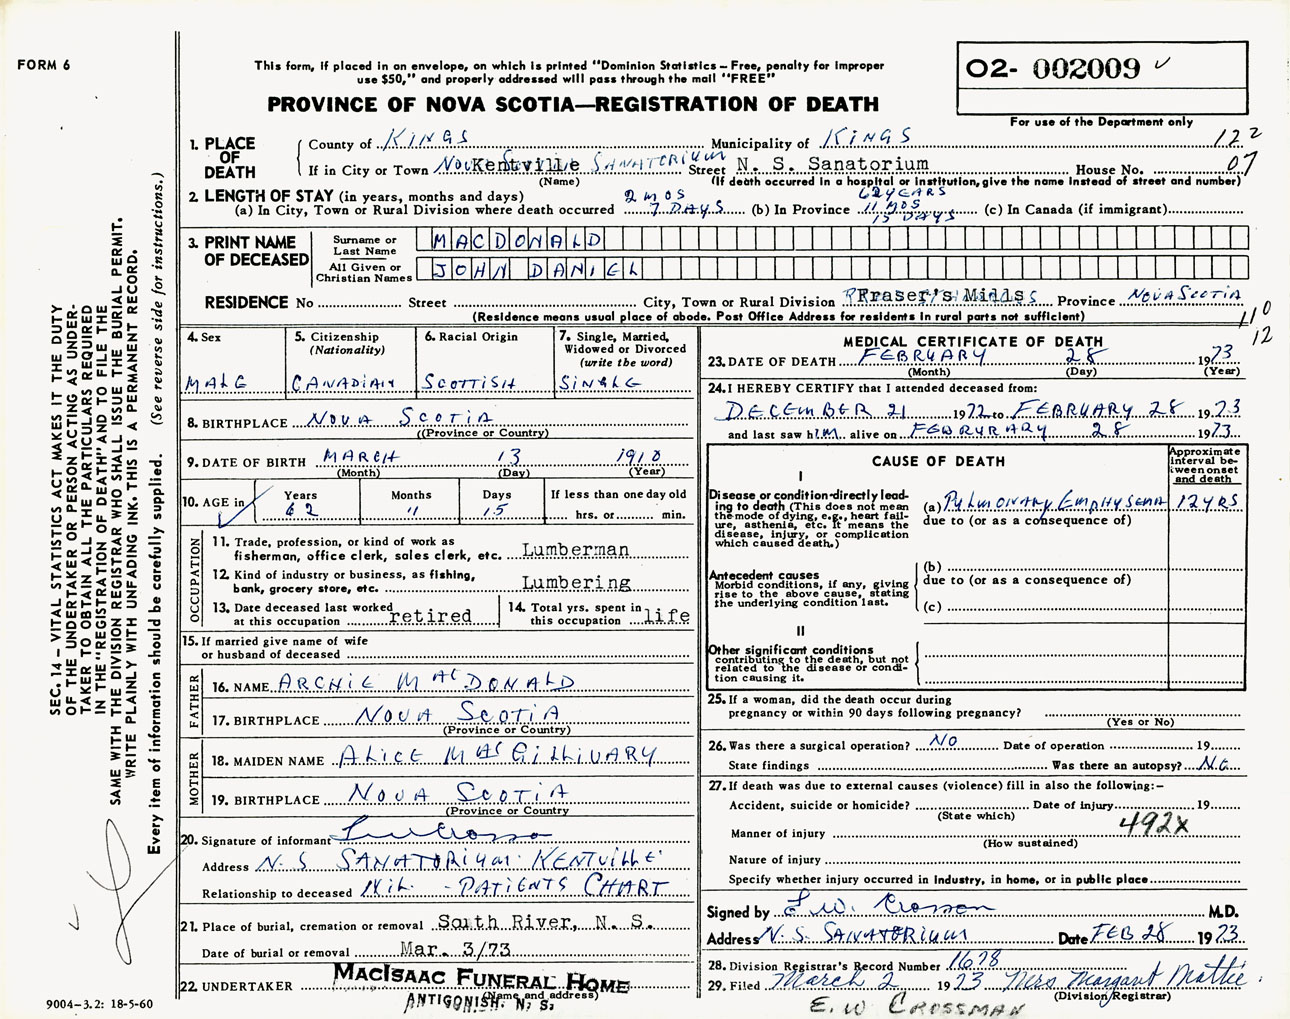 FORM 6
This form, if placed in an envelope, on which is printed "Dominion Statistics – Free, penalty for improper
use $50," and properly addressed will pass through the mail "FREE"
O2- 002009
PROVINCE OF NOVA SCOTIA—REGISTRATION OF DEATH
For use of the Department only
1. PLACE OF DEATH
County of KINGS Municipality of KINGS 122
If in City or Town Kentville SANATORIUM Street N. S. Sanatorium House No. 07
(Name) (If death occurred in a hospital or institution, give the name instead of street and number)
2. LENGTH OF STAY (in years, months and days)
(a) In City, Town or Rural Division where death occurred 2 MOS 7 DAYS (b) In Province 62 YEARS 11 MOS 15 DAYS (c) In Canada (if immigrant)
3. PRINT NAME OF DECEASED
Surname or Last Name MACDONALD
All Given or Christian Names JOHN DANIEL
RESIDENCE No Street City, Town or Rural Division Fraser's Mills Province NOVA SCOTIA
(Residence means usual place of abode. Post Office Address for residents in rural parts not sufficient) 110
12
4. Sex MALE
5. Citizenship (Nationality) CANADIAN
6. Racial Origin SCOTTISH
7. Single, Married, Widowed or Divorced (write the word) SINGLE
8. BIRTHPLACE NOVA SCOTIA
((Province or Country)
9. DATE OF BIRTH MARCH 13 1910
(Month) (Day) (Year)
10. AGE in Years 62 Months 11 Days 15 If less than one day old hrs. or min.
OCCUPATION
11. Trade, profession, or kind of work as
fisherman, office clerk, sales clerk, etc. Lumberman
12. Kind of industry or business, as fishing,
bank, grocery store, etc. Lumbering
13. Date deceased last worked at this occupation retired
14. Total yrs. spent in this occupation life
15. If married give name of wife
or husband of deceased
FATHER
16. NAME ARCHIE MacDONALD
17. BIRTHPLACE NOVA SCOTIA
(Province or Country)
MOTHER
18. MAIDEN NAME ALICE MacGILLIVARY
19. BIRTHPLACE NOVA SCOTIA
(Province or Country
20. Signature of informant
Address N. S SANATORIUM KENTVILLE
Relationship to deceased Nil - PATIENTS CHART
21. Place of burial, cremation or removal South River, N. S.
Date of burial or removal Mar. 3/73
22. UNDERTAKER MACISAAC FUNERAL HOME
(Name and address)
ANTIGONISH. N. S.
MEDICAL CERTIFICATE OF DEATH
23. DATE OF DEATH FEBRUARY 28 1973
(Month) (Day) (Year)
24. I HEREBY CERTIFY that I attended deceased from:
DECEMBER 21 1972 to FEBRUARY 28 1973
and last saw hIM alive on FEWRYRARY 28 1973
CAUSE OF DEATH
Approximate interval be-tween onset and death
I
Disease or condition directly lead-
ing to death (This does not mean
the mode of dying, e.g., heart fail-
ure, asthenia, etc. It means the
disease, injury, or complication
which caused death.)
(a) PULMONARY EMPHYSEMA 12 YRS
due to (or as a consequence of)
Antecedent causes
Morbid conditions, if any, giving
rise to the above cause, stating
the underlying condition last.
(b)
due to (or as a consequence of)
(c)
II
Other significant conditions
contributing to the death, but not
related to the disease or condi-
tion causing it.
25. If a woman, did the death occur during
pregnancy or within 90 days following pregnancy?
(Yes or No)
26. Was there a surgical operation? NO Date of operation 19
State findings Was there an autopsy? NO
27. If death was due to external causes (violence) fill in also the following:–
Accident, suicide or homicide? Date of injury 19
(State which) 492X
Manner of injury
(How sustained)
Nature of injury
Specify whether injury occurred in industry, in home, or in public place
Signed by E. W. Crossman M.D.
Address N. S. SANATORIUM Date FEB 28 1973
28. Division Registrar's Record Number 1678
29. Filed March 2 1973 Mrs Margaret Mattie
(Division Registrar)
E. W CROSSMAN
SEC. 14 – VITAL STATISTICS ACT MAKES IT THE DUTY
OF THE UNDERTAKER OR PERSON ACTING AS UNDER-
TAKER TO OBTAIN ALL THE PARTICULARS REQUIRED
IN THE "REGISTRATION OF DEATH" AND TO FILE THE
SAME WITH THE DIVISION REGISTRAR WHO SHALL ISSUE THE BURIAL PERMIT.
WRITE PLAINLY WITH UNFADING INK. THIS IS A PERMANENT RECORD.
Every item of information should be carefully supplied. (See reverse side for instructions.)
9004-3.2: 18-5-60